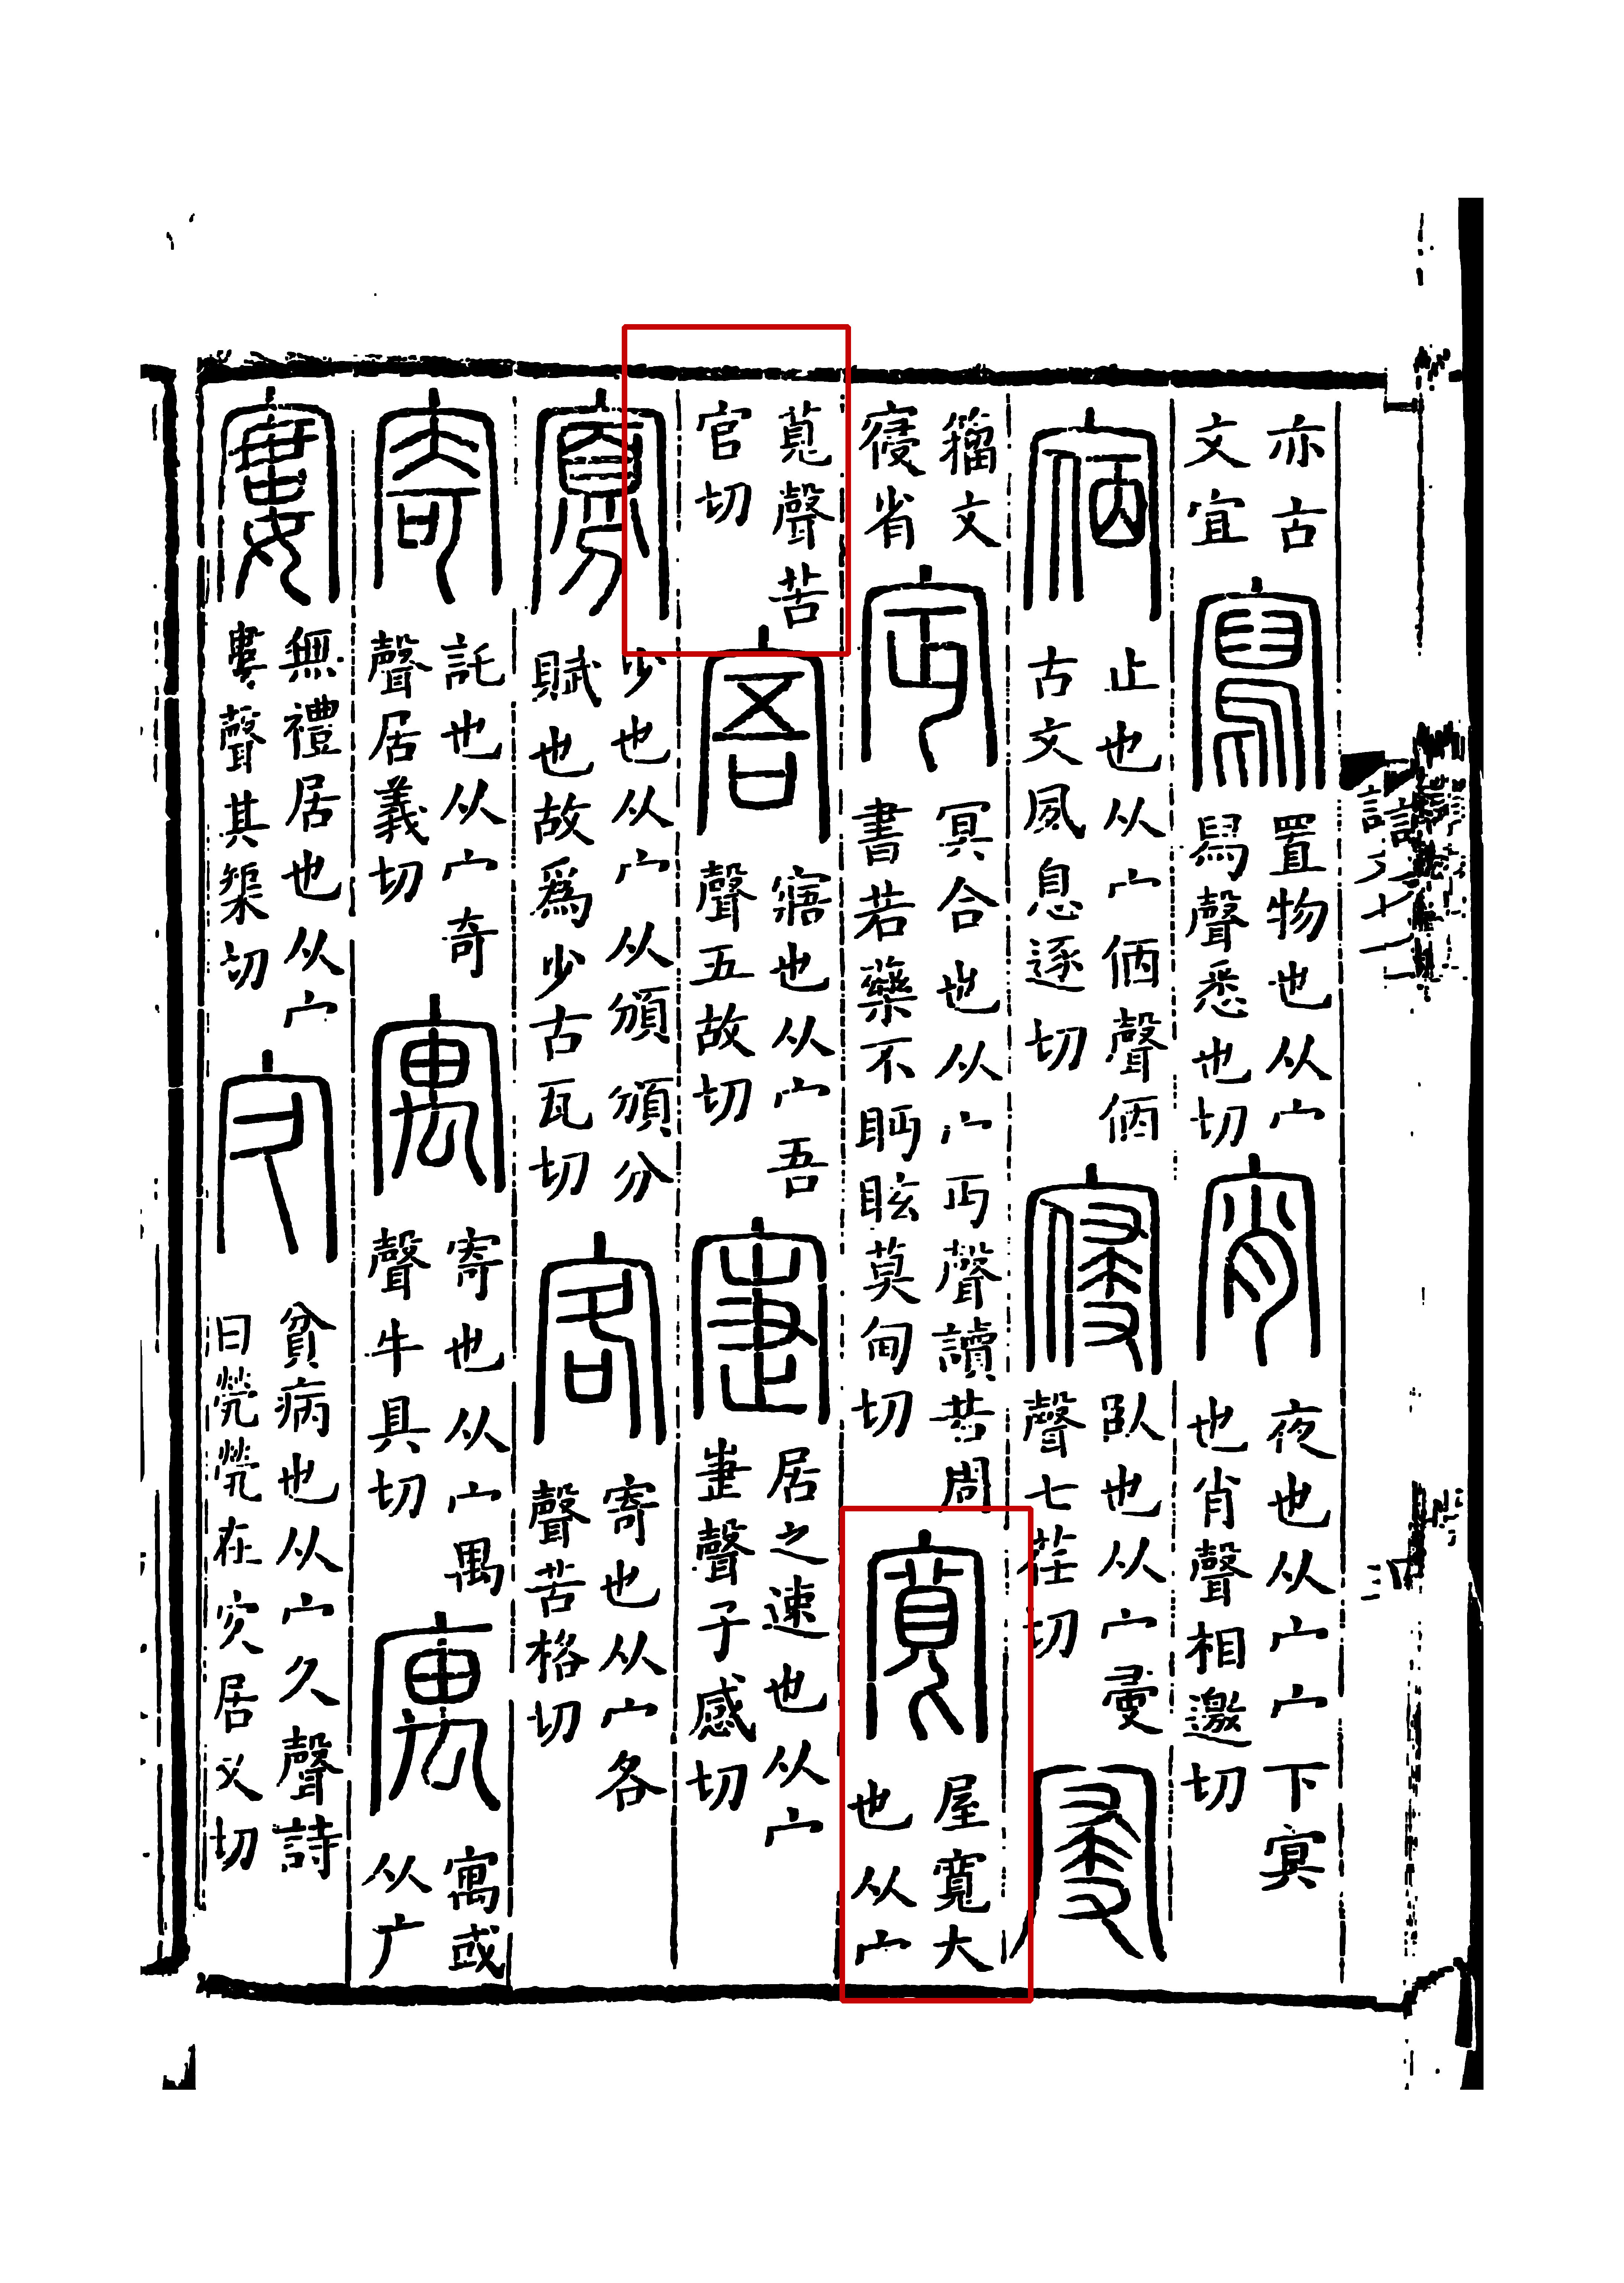 亦古文宜寫置物也从宀舄聲悉也切宵夜也从宀宀下冥也肖聲相邀切
𡪢止也从宀㑂聲㑂古文夙息逐切寑臥也从宀㑴聲七荏切𡨦
籒文寑省𡧍冥合也从宀丏聲讀若周書若藥不眄眩莫甸切寬屋寬大也从宀
萈聲苦官切寤寤也从宀吾聲五故切寁居之速也从宀疌聲子感切
寡少也从宀从頒頒分賦也故爲少古瓦切客寄也从宀各聲苦格切
寄託也从宀奇聲居義切寓寄也从宀禺聲牛具切庽寓或从广
寠無禮居也从宀婁聲其榘切㝌貧病也从宀久聲詩曰煢煢在㝌居又切